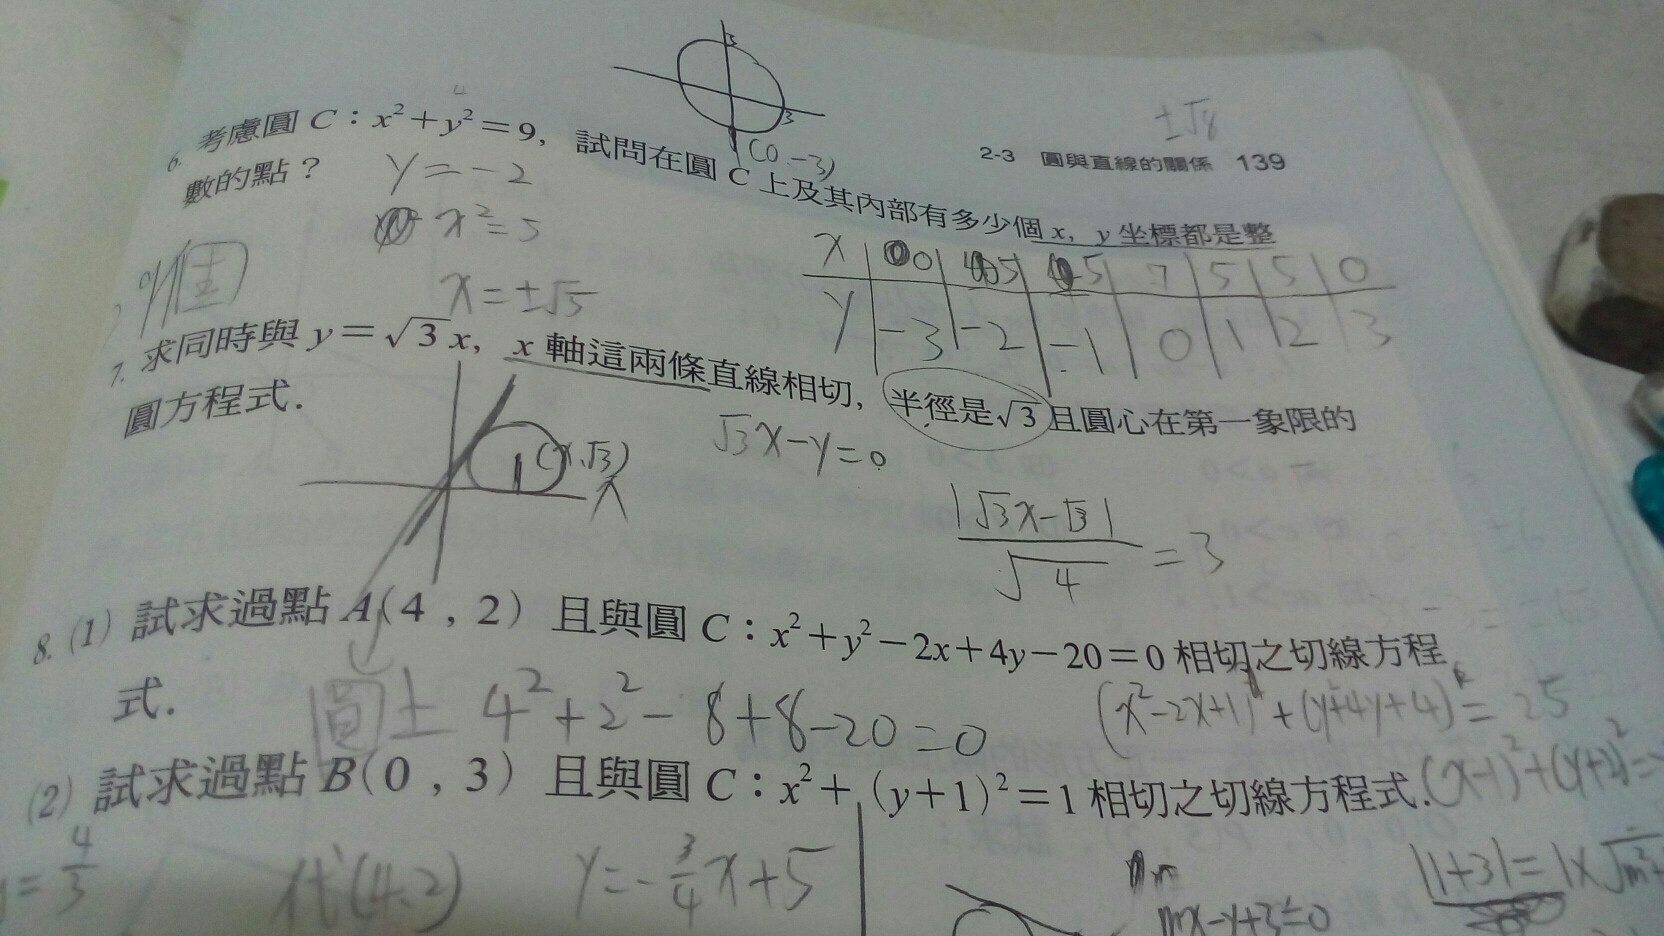 2-3 圓與直線的關係 139
±√8
3
3
(0,-3)
6. 考慮圓 C：x²+y²=9，試問在圓 C 上及其內部有多少個 x，y 坐標都是整
數的點？
y=-2
x²=5
x=±√5
x | 0 | 5 | 5 | 7 | 5 | 5 | 0
y | -3 | -2 | -1 | 0 | 1 | 2 | 3
7. 求同時與 y=√3 x，x 軸這兩條直線相切，半徑是√3 且圓心在第一象限的
圓方程式．
(x,√3)
x
√3x-y=0
|√3x-√3|/√4 = 3
8. (1) 試求過點 A(4，2) 且與圓 C：x²+y²-2x+4y-20=0 相切之切線方程
式．
圓上 4²+2²-8+8-20=0
(x²-2x+1)+(y²+4y+4)=25
(x-1)²+(y+2)²=
(2) 試求過點 B(0，3) 且與圓 C：x²+(y+1)²=1 相切之切線方程式．
=4/3
代(4,2)
y=-3/4x+5
mx-y+3=0
|1+3|=1×√m²+